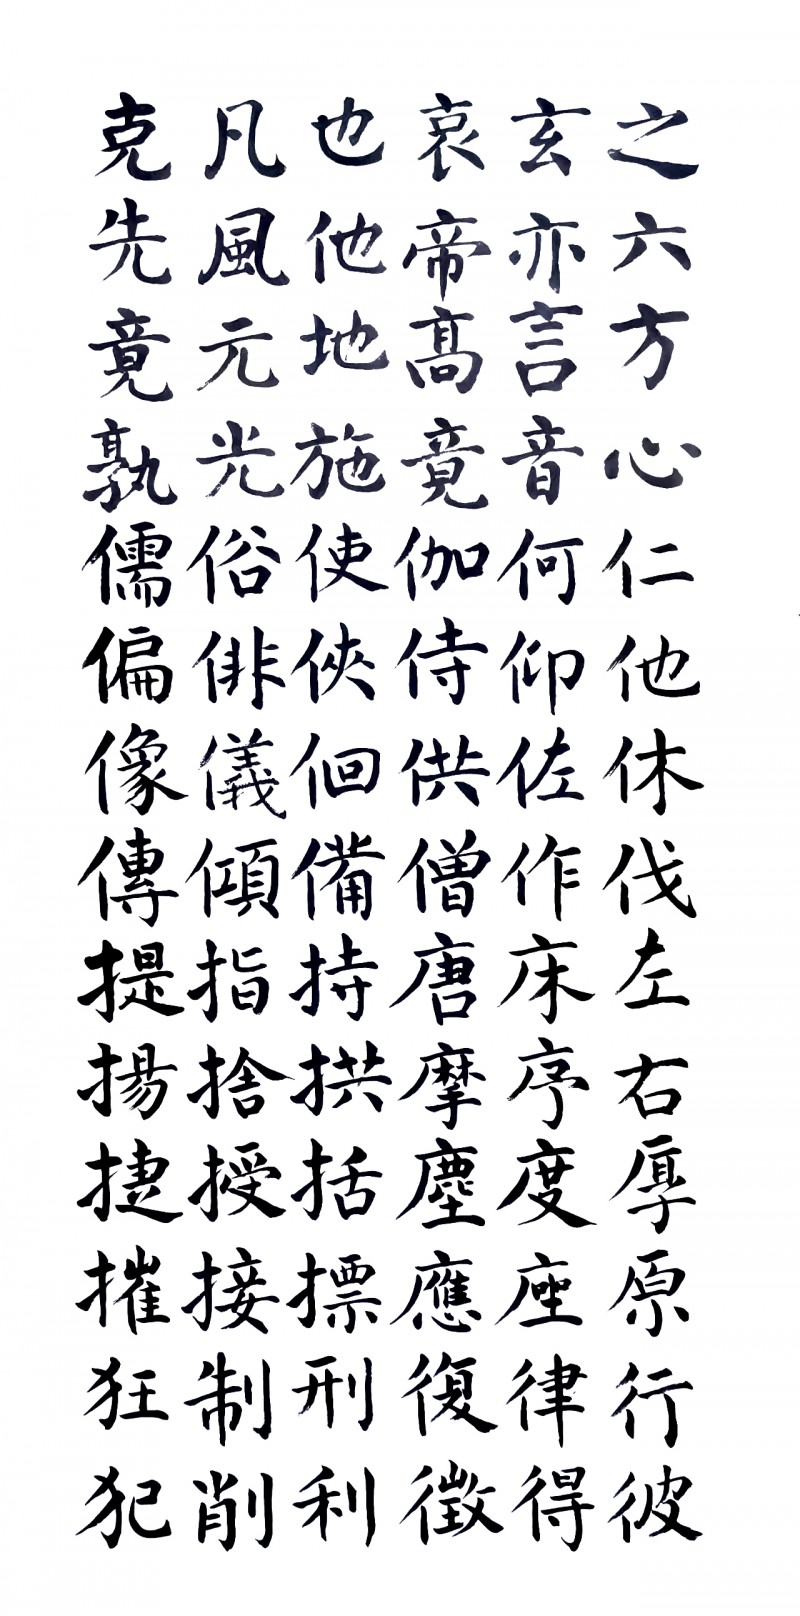 之六方心仁他休伐左右厚原行彼
玄亦言音何仰佐作床序度座律得
哀帝髙竟伽侍供僧唐摩塵應復徵
也他地施使俠佪備持拱括摽刑利
凡風元光俗俳儀傾指捨授接制削
克先竟孰儒偏像傳提揚捷摧狂犯